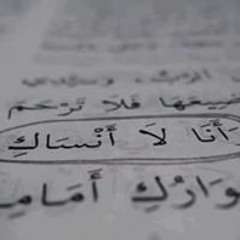 الرب، وسيدي
رَضِيعَهَا فَلاَ تَرْحَمَ
وَأَنَا لاَ أَنْسَاكِ
وَارُكِ أَمَامِي